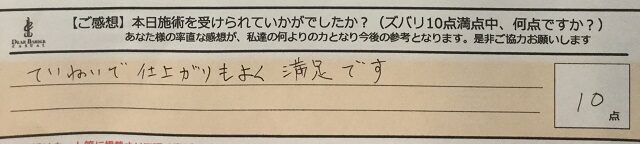 【ご感想】本日施術を受けられていかがでしたか？（ズバリ10点満点中、何点ですか？）
DEAR BARBER
CASUAL
あなた様の率直な感想が、私達の何よりの力となり今後の参考となります。是非ご協力お願いします
ていねいで仕上がりもよく満足です
10点